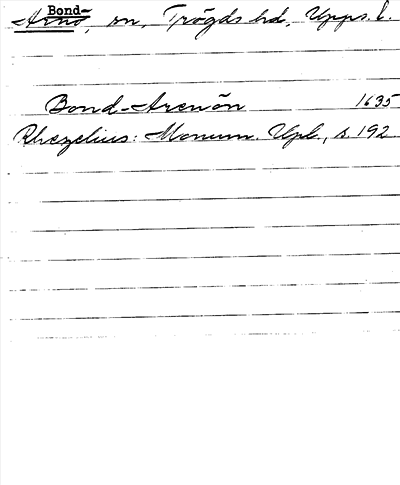 Bond-
Arnö, sn, Trögds hd, Upps. l.
Bond-Arenön 1635
Rhezelius: Monum. Upl., s 192